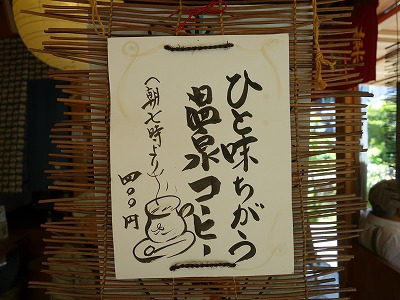 ひと味ちがう
温泉コーヒー
(朝七時より)
四〇〇円